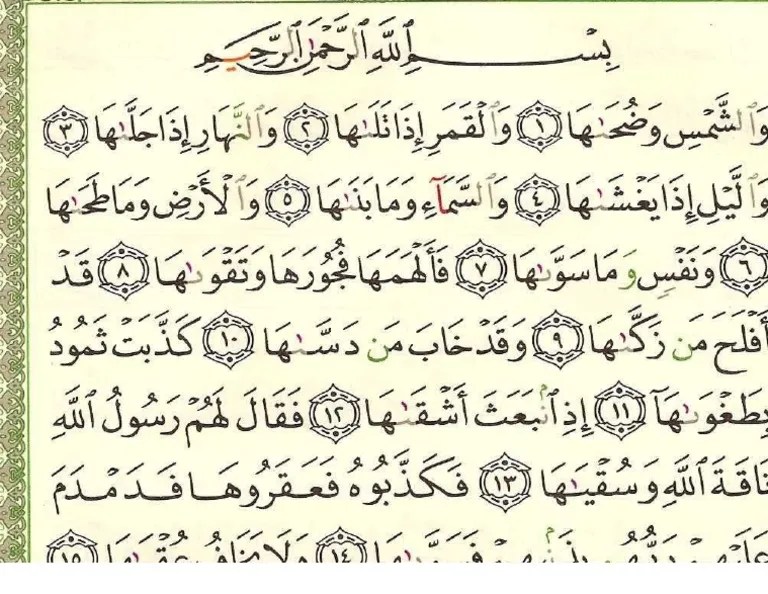 بِسْمِ ٱللَّهِ ٱلرَّحْمَٰنِ ٱلرَّحِيمِ
وَٱلشَّمْسِ وَضُحَىٰهَا ١ وَٱلْقَمَرِ إِذَا تَلَىٰهَا ٢ وَٱلنَّهَارِ إِذَا جَلَّىٰهَا ٣
وَٱلَّيْلِ إِذَا يَغْشَىٰهَا ٤ وَٱلسَّمَآءِ وَمَا بَنَىٰهَا ٥ وَٱلْأَرْضِ وَمَا طَحَىٰهَا
٦ وَنَفْسٍ وَمَا سَوَّىٰهَا ٧ فَأَلْهَمَهَا فُجُورَهَا وَتَقْوَىٰهَا ٨ قَدْ
أَفْلَحَ مَن زَكَّىٰهَا ٩ وَقَدْ خَابَ مَن دَسَّىٰهَا ١٠ كَذَّبَتْ ثَمُودُ
بِطَغْوَىٰهَآ ١١ إِذِ ٱنۢبَعَثَ أَشْقَىٰهَا ١٢ فَقَالَ لَهُمْ رَسُولُ ٱللَّهِ
نَاقَةَ ٱللَّهِ وَسُقْيَٰهَا ١٣ فَكَذَّبُوهُ فَعَقَرُوهَا فَدَمْدَمَ
عَلَيْهِمْ رَبُّهُم بِذَنۢبِهِمْ فَسَوَّىٰهَا ١٤ وَلَا يَخَافُ عُقْبَٰهَا ١٥